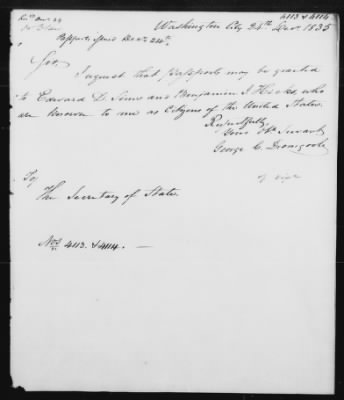 4113 & 4114
Washington City 24th Decr 1835
Passports issued Decr 24th
Sir,
I request that Passports may be granted
to Edward D. Sims and Benjamin I. Hicks who
are known to me as Citizens of the United States.
Respectfully
Your Obt Servant
George C. Dromgoole
of Virga
To
The Secretary of State.
Nos 4113. & 4114. —